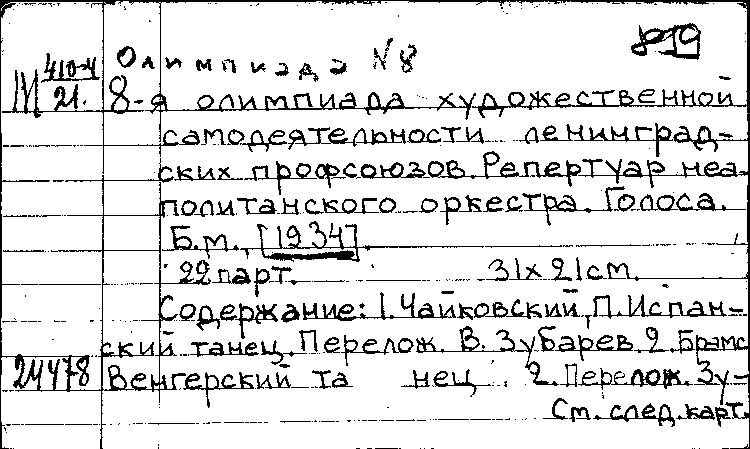 Олимпиада N 8
М 410-4
21.
8-я олимпиада художественной
самодеятельности ленинград-
ских профсоюзов. Репертуар неа-
политанского оркестра. Голоса.
Б.м., [1934].
22 парт. 31х21см.
Содержание: 1. Чайковский, П. Испан-
ский танец. Перелож. В. Зубарев. 2. Брамс
24478 Венгерский танец. 2. Перелож. Зу-
См. след. карт.